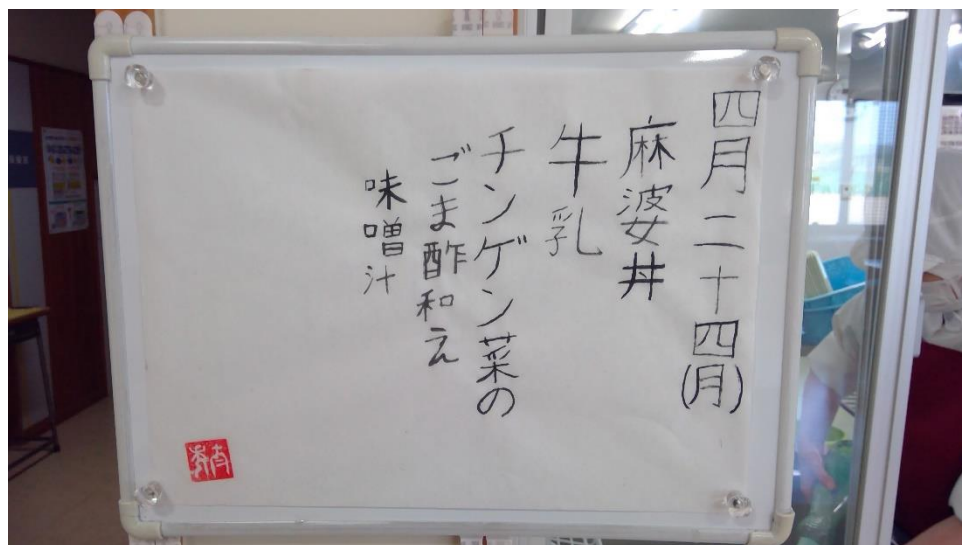 四月二十四(月)
麻婆丼
牛乳
チンゲン菜の
ごま酢和え
味噌汁